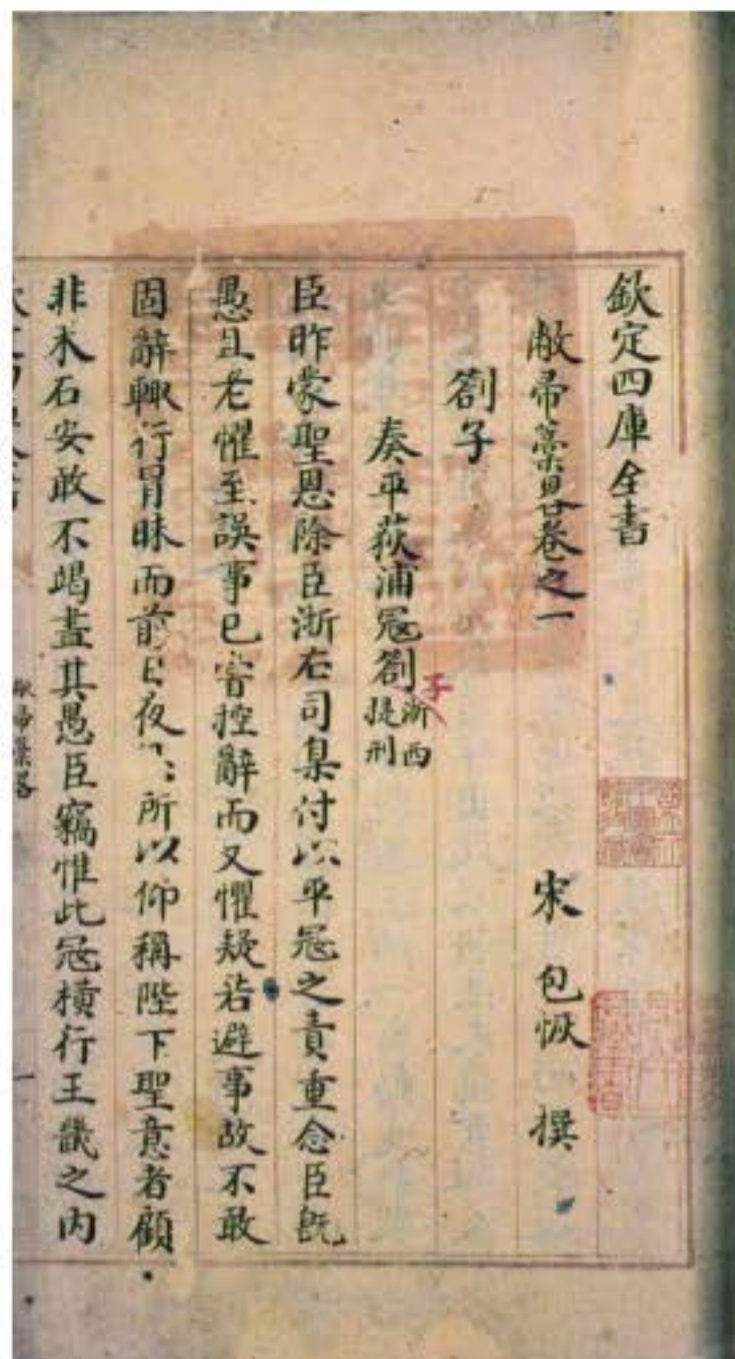 欽定四庫全書
敝帚藁畧卷之一
宋 包恢 撰
劄子
奏平荻浦冦劄子浙西提刑
臣昨蒙聖恩除臣浙右司臬付以平冦之責重念臣旣
愚且老懼至誤事已嘗控辭而又懼疑若避事故不敢
固辭輒行冒昧而前日夜 所以仰稱陛下聖意者顧
非木石安敢不竭盡其愚臣竊惟此冦橫行王畿之内
敝帚藁畧
一